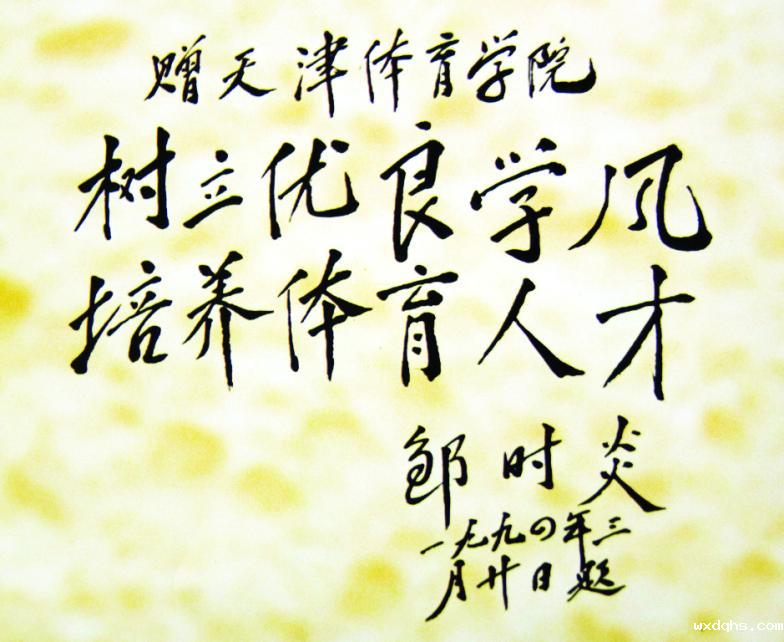 赠天津体育学院
树立优良学风
培养体育人才
邹时炎
一九九四年三
月廿日题
wxdqhs.com